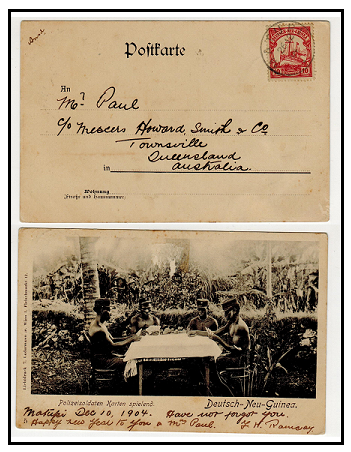 Postkarte
An
Mr. Paul
c/o Messers Howard, Smith & Co
Townsville
Queensland
in Australia.
Wohnung
Straße und Hausnummer.
10 10
Polizeisoldaten Karten spielend.
Deutsch-Neu-Guinea.
Matupi Dec 10, 1904. Have not forgot you.
Happy new Year to you a Mrs Paul.